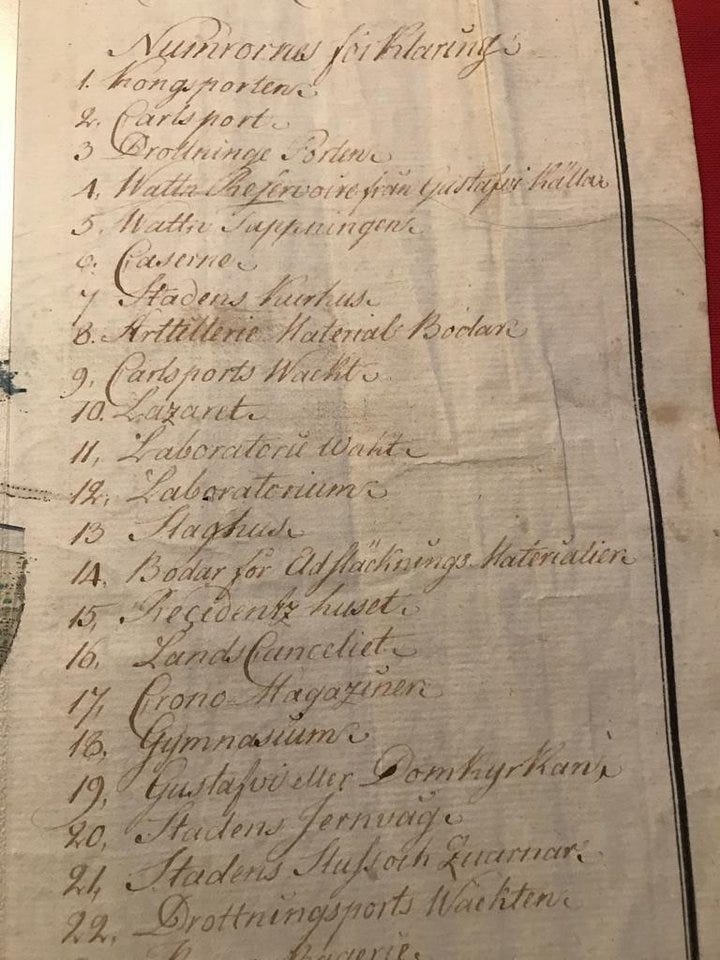 Numrornes förklaring
1. Kongsporten
2. Carlsport
3 Drottninge Porten
4, Wattn Reservoire från Gustafvi Källa
5. Wattn Tappningen
6. Caserne
7 Stadens Kurhus
8. Arttillerie Material Bodar
9, Carlsports Wackt
10. Lazaret
11, Laboratorie Wakt
12, Laboratorium
13 Slaghus
14. Bodar för Eldsläcknings Materialier
15, Recidentz huset
16, Lands Canceliet
17, Crono Magaziner
18, Gymnasium
19, Gustafvi eller Domkyrkan
20, Stadens Jernvåg
21, Stadens Sluss och Quarnar
22. Drottningsports Wackten
Bagerie